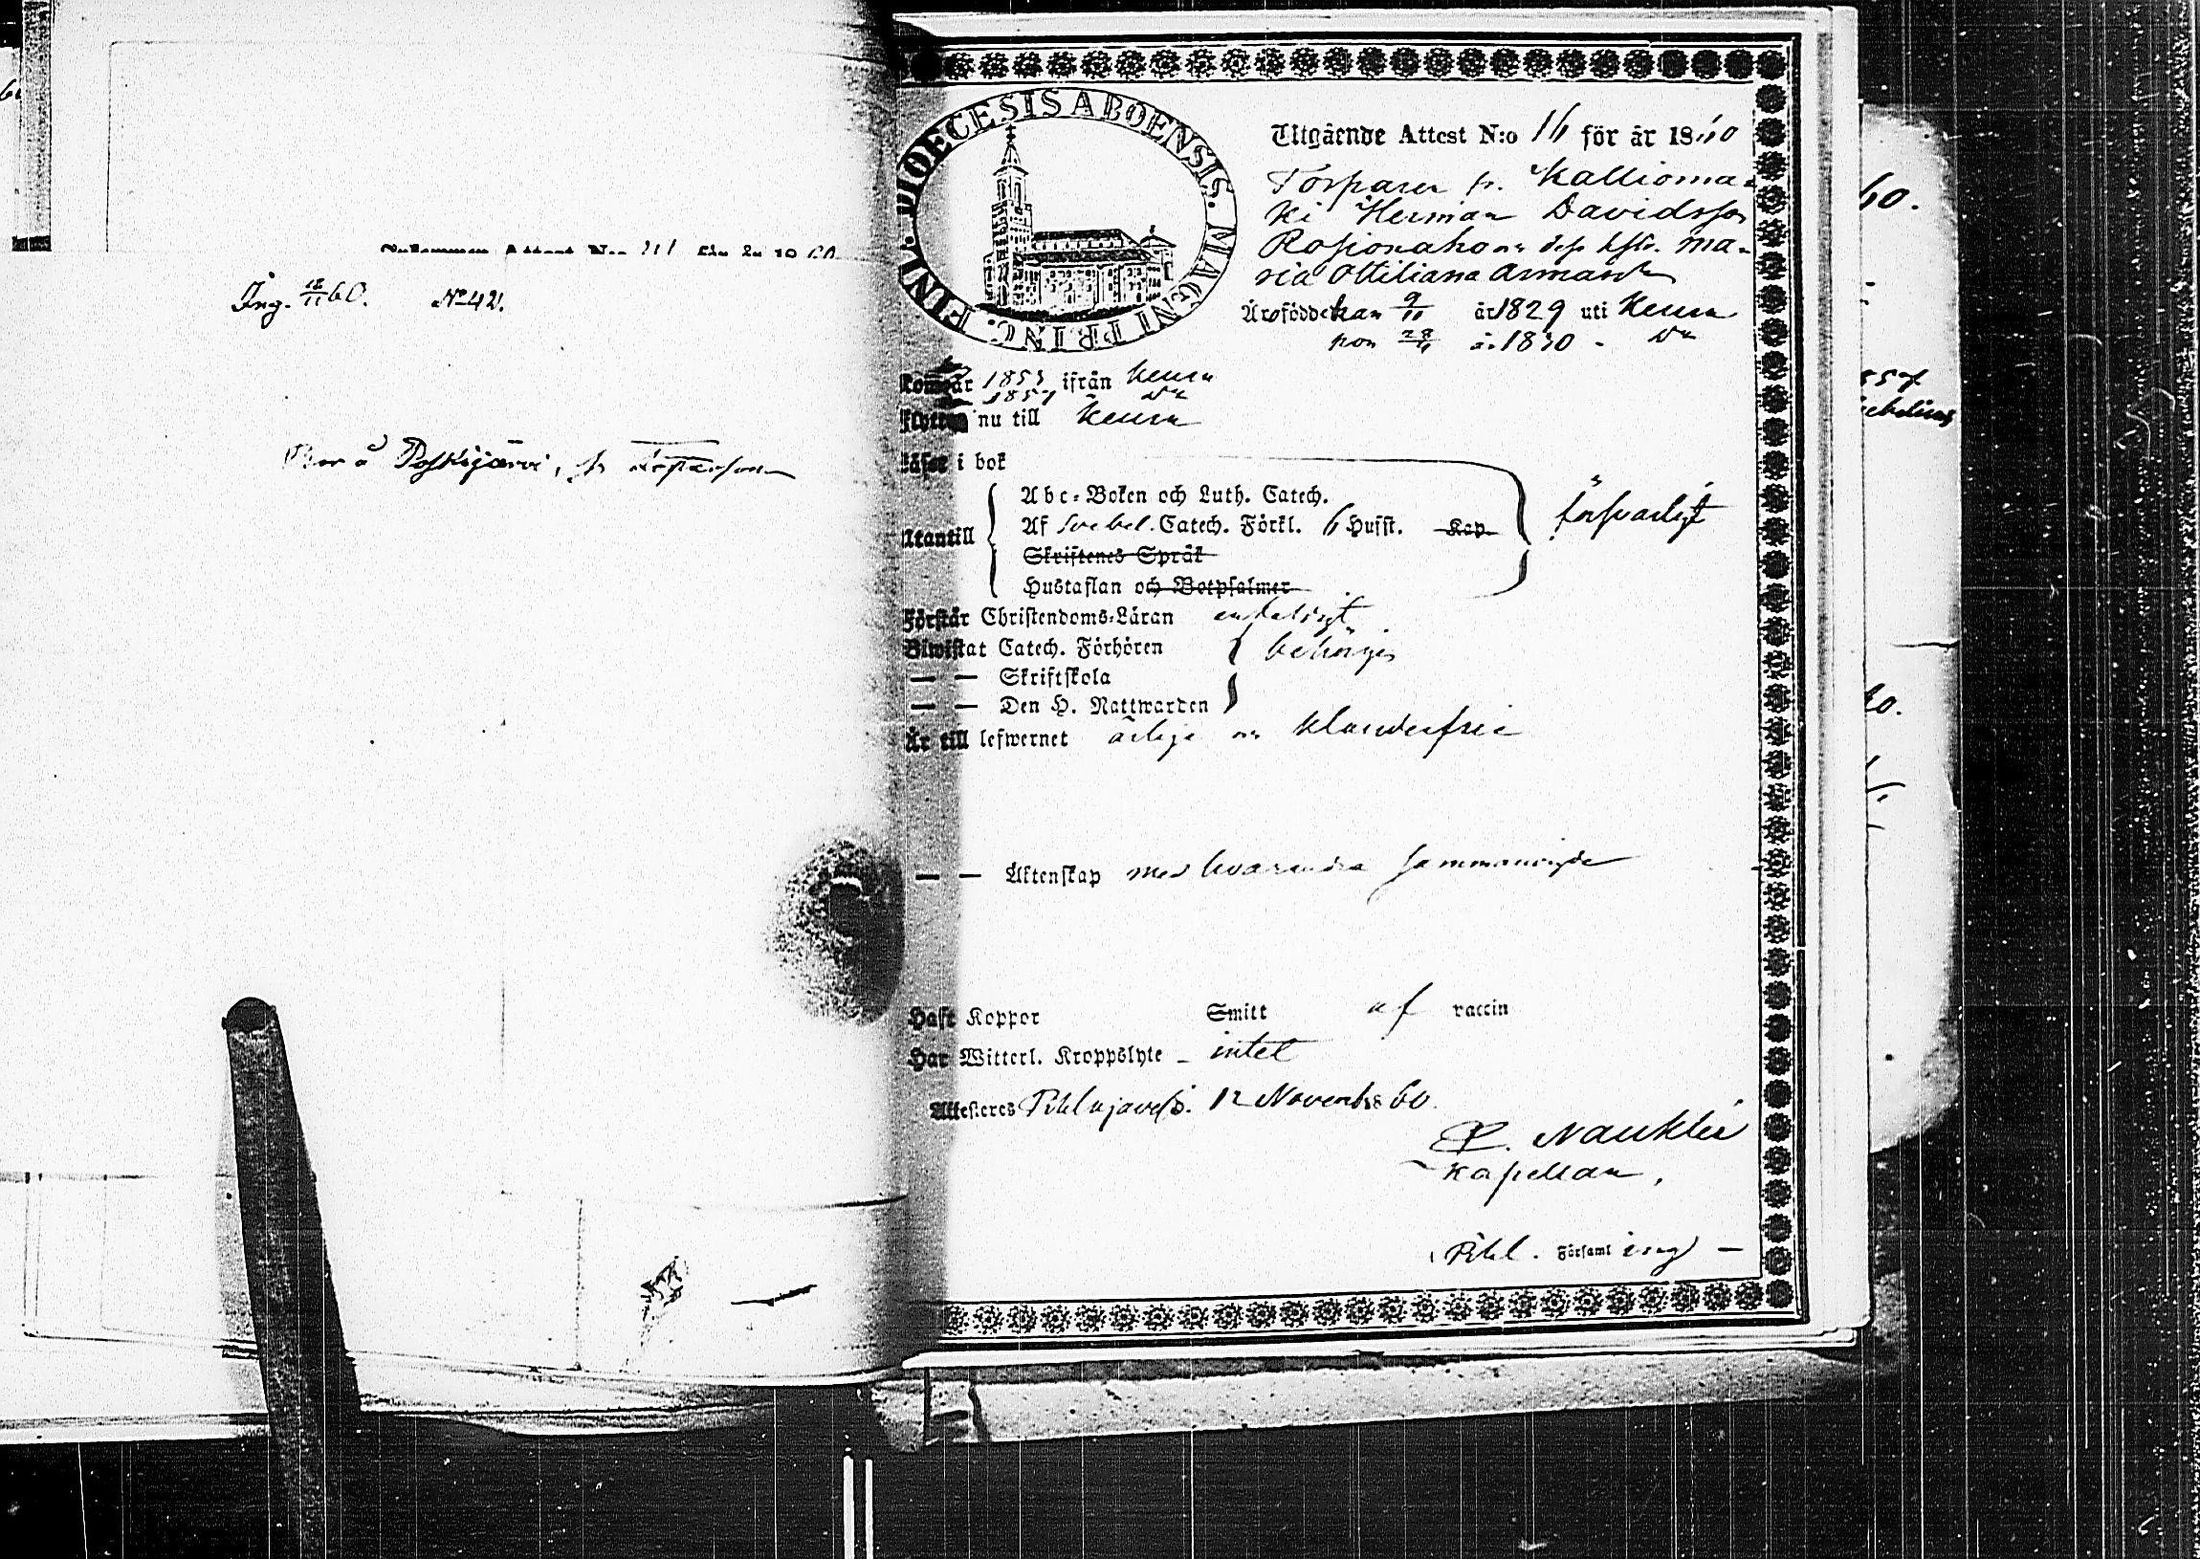 Ing. 18/11 60. No 42.
Bor å Poskijärvi,
FINL. DIOECESIS ABOENSIS. MAGNI PRINC.
Utgående Attest N:o 16 för år 1860
Torparen fr. Kallioma-
ki Herman Davidsson
Rosionaho och dess hstr. Ma-
ria Ottiliana
Äro födde han 9/11 år 1829 uti Keuru
hon år 1830 - Do
Kom år 1853 ifrån Keuru
1857 Do
flytta nu till Keuru
Läser i bok
Abc-Boken och Luth. Catech.
Utantill Af Svebel. Catech. Förkl. 6 Hufst. Kap. försvarligt
Skriftenes Språk
Hustaflan och Botpsalmer
Förstår Christendoms-Läran enkeligt
Biwistat Catech. Förhören behörigen
— — Skriftskola
— — Den H. Nattwarden
Är till lefwernet ärlige och klanderfrie
— — Äktenskap med hvarandra sammanvigde
Haft Koppor Smitt af vaccin
Har Witterl. Kroppslyte - intet
Attesteras Pihlajavesi. 12 November 60.
Nauklér
Kapellan,
Pihl. Församling —
60.
1857